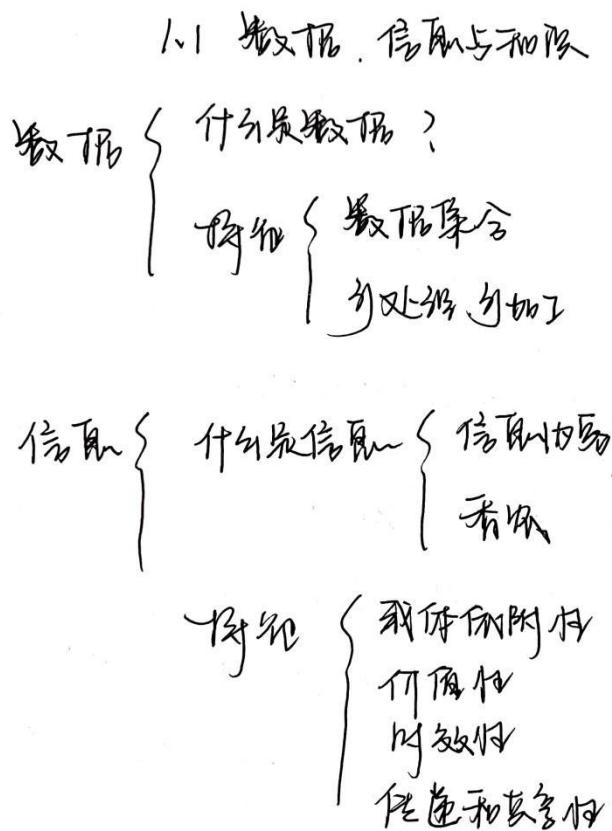 1.1 数据、信息与知识
数据 { 什么是数据?
特征 { 数据集合
可处理、可加工
信息 { 什么是信息 { 信息论
香农
特征 { 载体依附性
价值性
时效性
传递和共享性